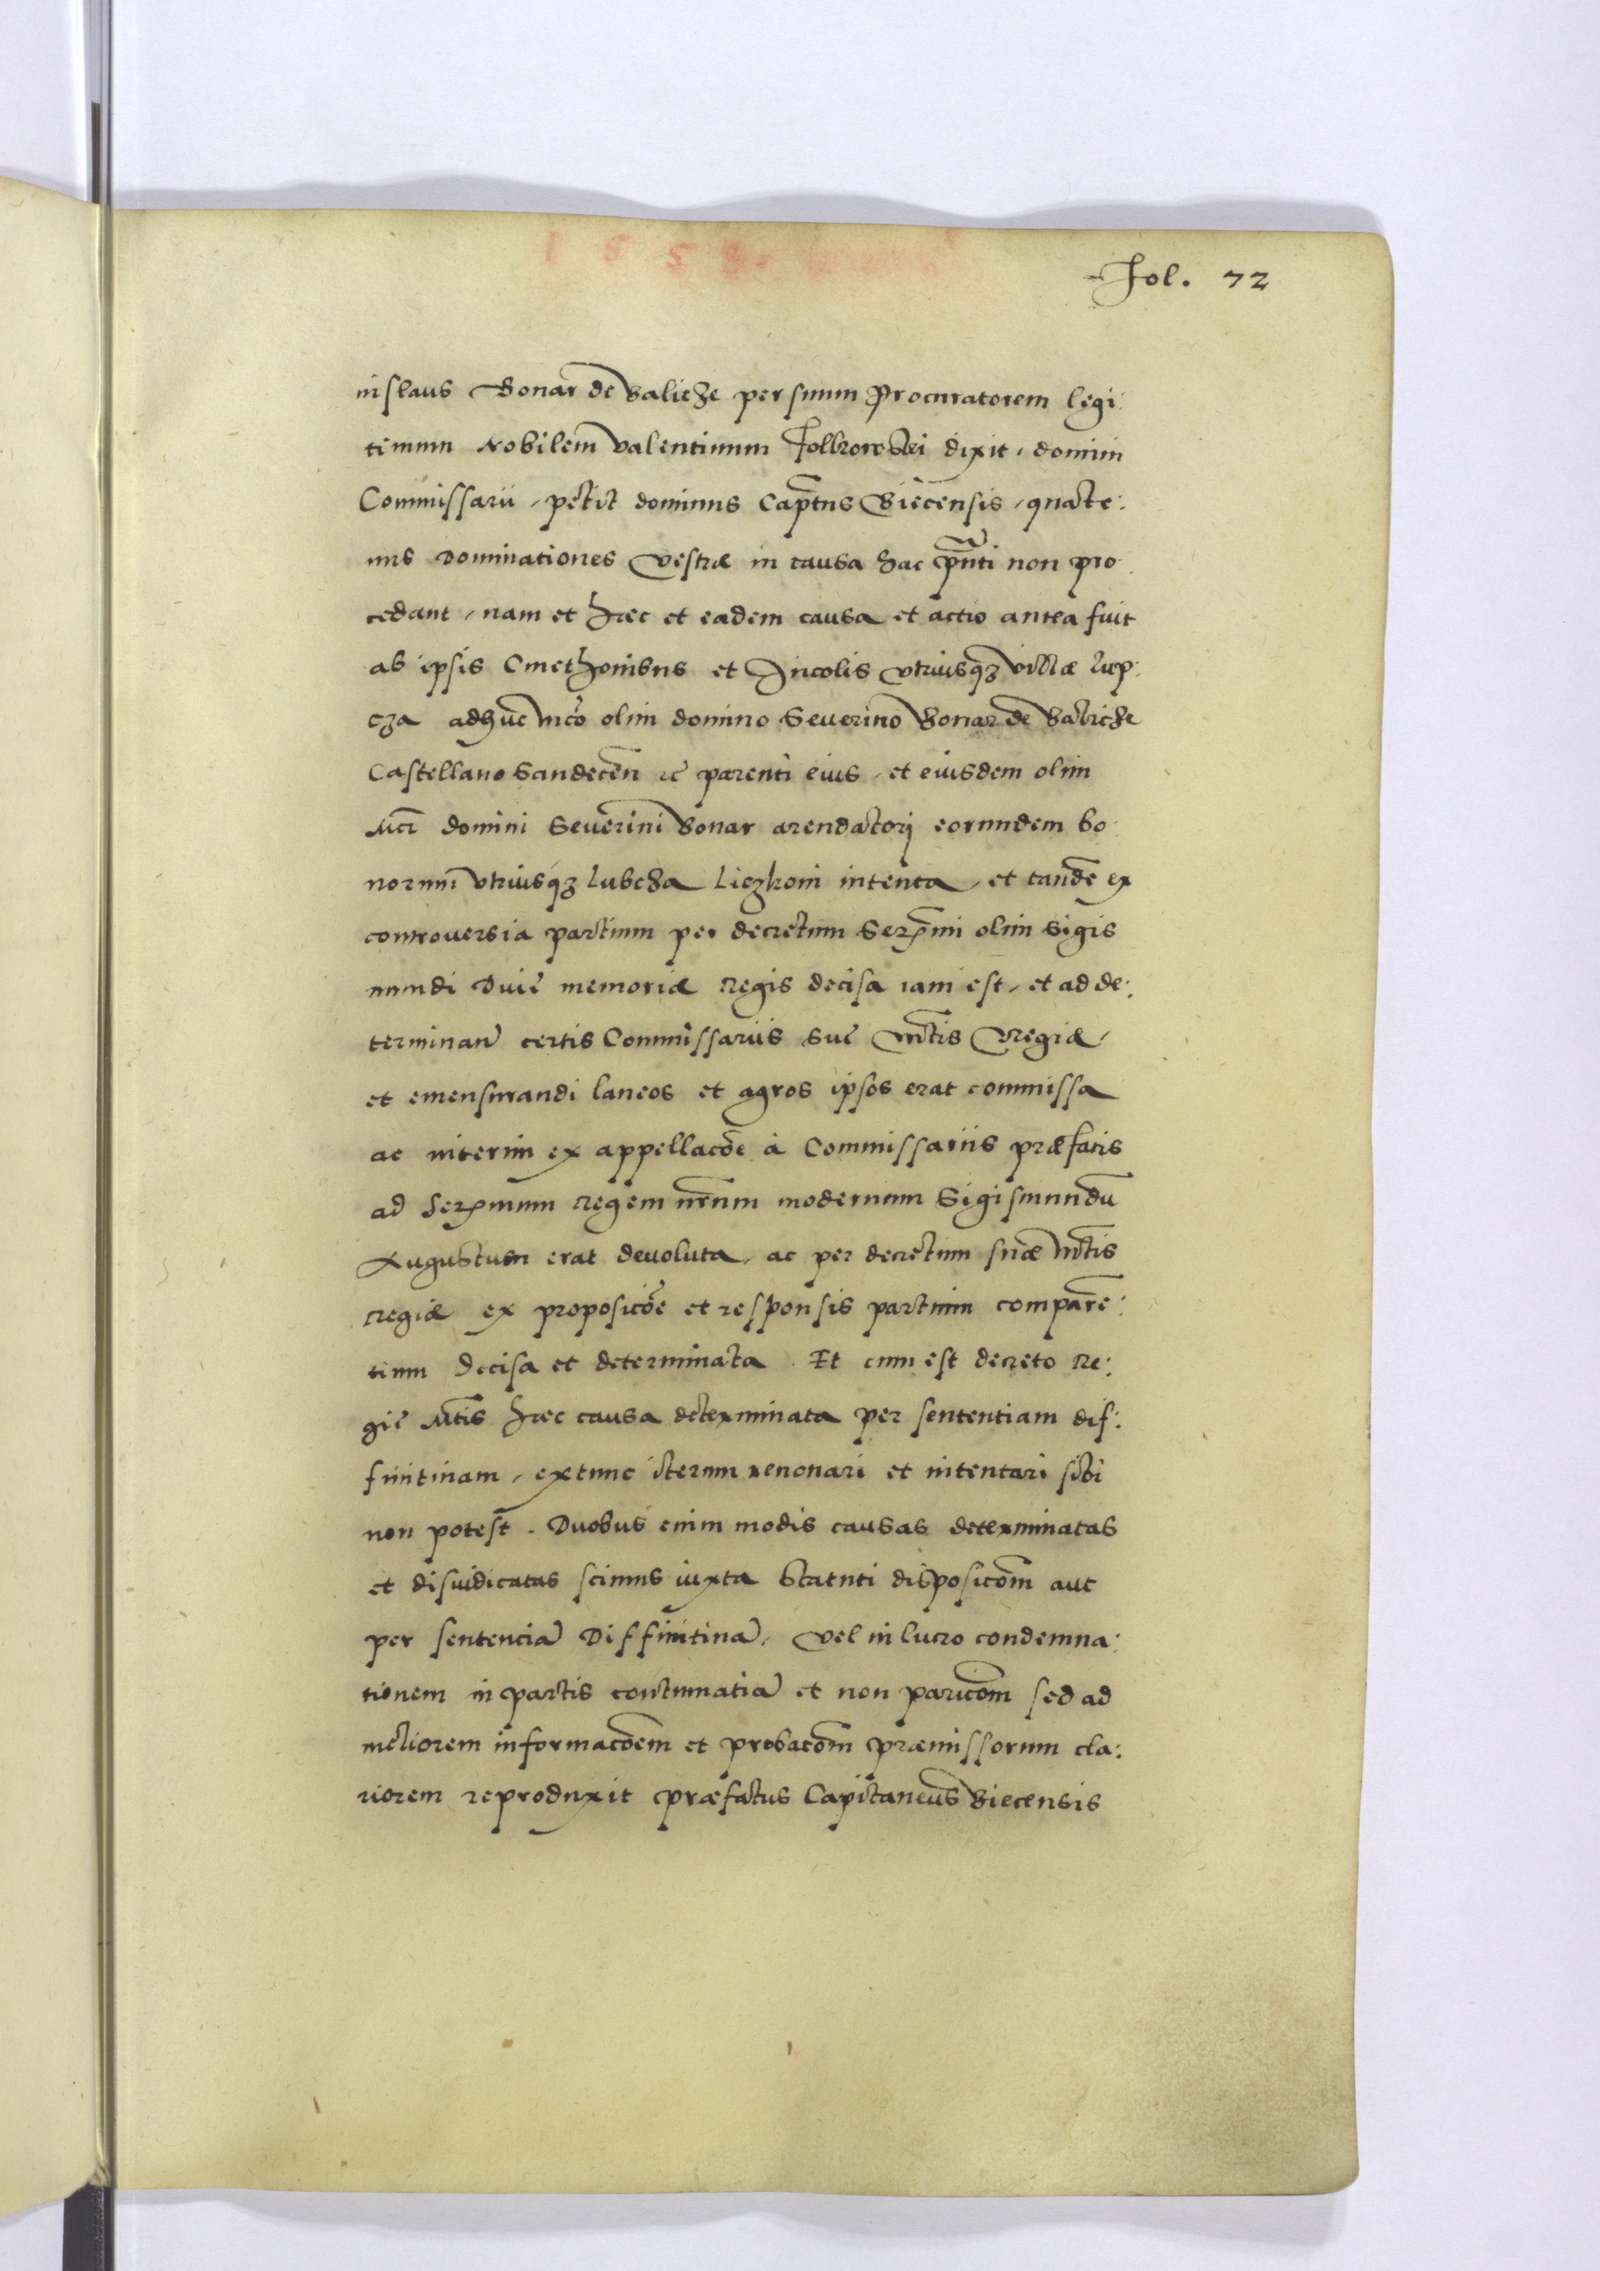 Fol. 72
nislaus Bonar de Baliche per suum Procuratorem legi:
timum Nobilem Valentinum dixit, domini
Commissarii, petit dominus Captus Biecensis, quate:
nus Dominationes Vestræ in causa hac pnti non pro
cedant, nam et hæc et eadem causa et actio antea fuit
ab ipsis Cmethonibus et Incolis utriusqz villæ Lup:
cza adhuc mco olim domino Severino Bonar de Baliche
Castellano Sandecen rc parenti eius, et eiusdem olim
Mci domini Severini Bonar arendatorj eorundem bo
norum utriusqz Lubcza Liczkoni intenta, et tande ex
controversia partium per decretum Sermi olim Sigis
mundi Divæ memoriæ Regis decisa iam est, et ad de:
terminan certis Commissariis Suę Mtis Regiæ,
et emensurandi laneos et agros ipsos erat commissa
ac interim ex appellacõe à Commissariis præfatis
ad Sermum Regem nrum modernum Sigismundũ
Augustum erat devoluta, ac per decretum suæ Mtis
regiæ ex proposicõe et responsis partium comparẽ:
tium decisa et determinata. Et cum est decreto Re:
gię Mtis hæc causa determinata per sententiam dif:
finitivam, extunc iterum renovari et intentari sibi
non potest. Duobus enim modis causas determinatas
et disiudicatas scimus iuxta Statuti disposicõm aut
per sentenciã Diffinitivã, Vel in lucro condemna:
tionem in partis contumatiã et non paricõm sed ad
meliorem informacõem et probacõm præmissorum cla:
riorem reproduxit præfatus Capitaneus Biecensis